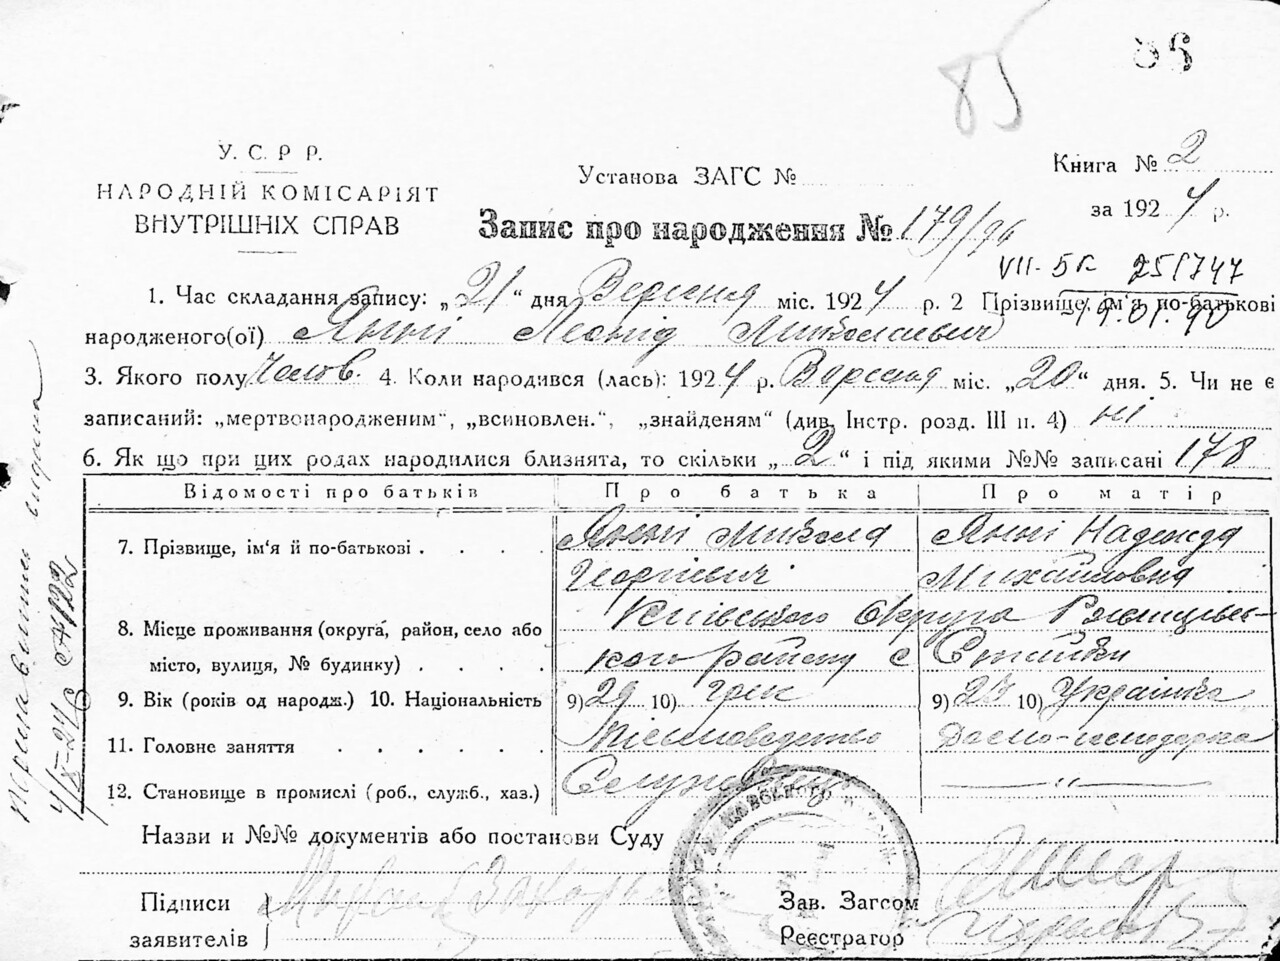 86
85
У. С. Р Р.
НАРОДНІЙ КОМІСАРІЯТ
ВНУТРІШНІХ СПРАВ
Установа ЗАГС №
Книга № 2
за 1924 р.
Запис про народження № 179/96
VII-5К 251747
19.01.90
1. Час складання запису: „21“ дня Вересня міс. 1924 р. 2 Прізвище, ім'я по-батькові
народженого(ої) Янні Леонід Миколаевич
3. Якого полу Чолов. 4. Коли народився (лась): 1924 р. Вересня міс. „20“ дня. 5. Чи не є
записаний: „мертвонародженим“, „всиновлен.“, „знайденям“ (див. Інстр. розд. III п. 4) ні
6. Як що при цих родах народилися близнята, то скільки „2“ і під якими №№ записані 178
Відомості про батьків Про батька Про матір
7. Прізвище, ім'я й по-батькові . . . . Янні Микола Янні Надежда
Георгіевич Михайловна
8. Місце проживання (округа, район, село або Київського Округа Ржищівсь-
місто, вулиця, № будинку) . . . . кого району с Стайки
9. Вік (років од народж.) 10. Національність 9) 29 10) Грек 9) 10) Українка
11. Головне заняття . . . . . Домо-господарка
12. Становище в промислі (роб., служб., хаз.) — „ —
Назви и №№ документів або постанови Суду
Підписи
заявителів
Зав. Загсом
Реєстратор